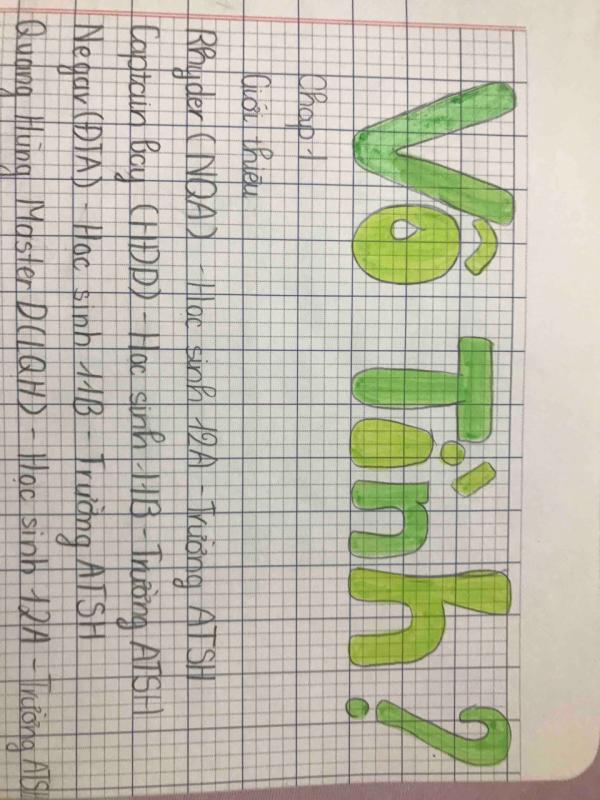 Vô Tình?
Chap 1
Giới thiệu
Rhyder (NQA) - Học sinh 12A - Trường ATSH
Captain boy (HDD) - Học sinh 11B - Trường ATSH
Negav (ĐTA) - Học sinh 11B - Trường ATSH
Quang Hùng MasterD (LQH) - Học sinh 12A - Trường ATSH